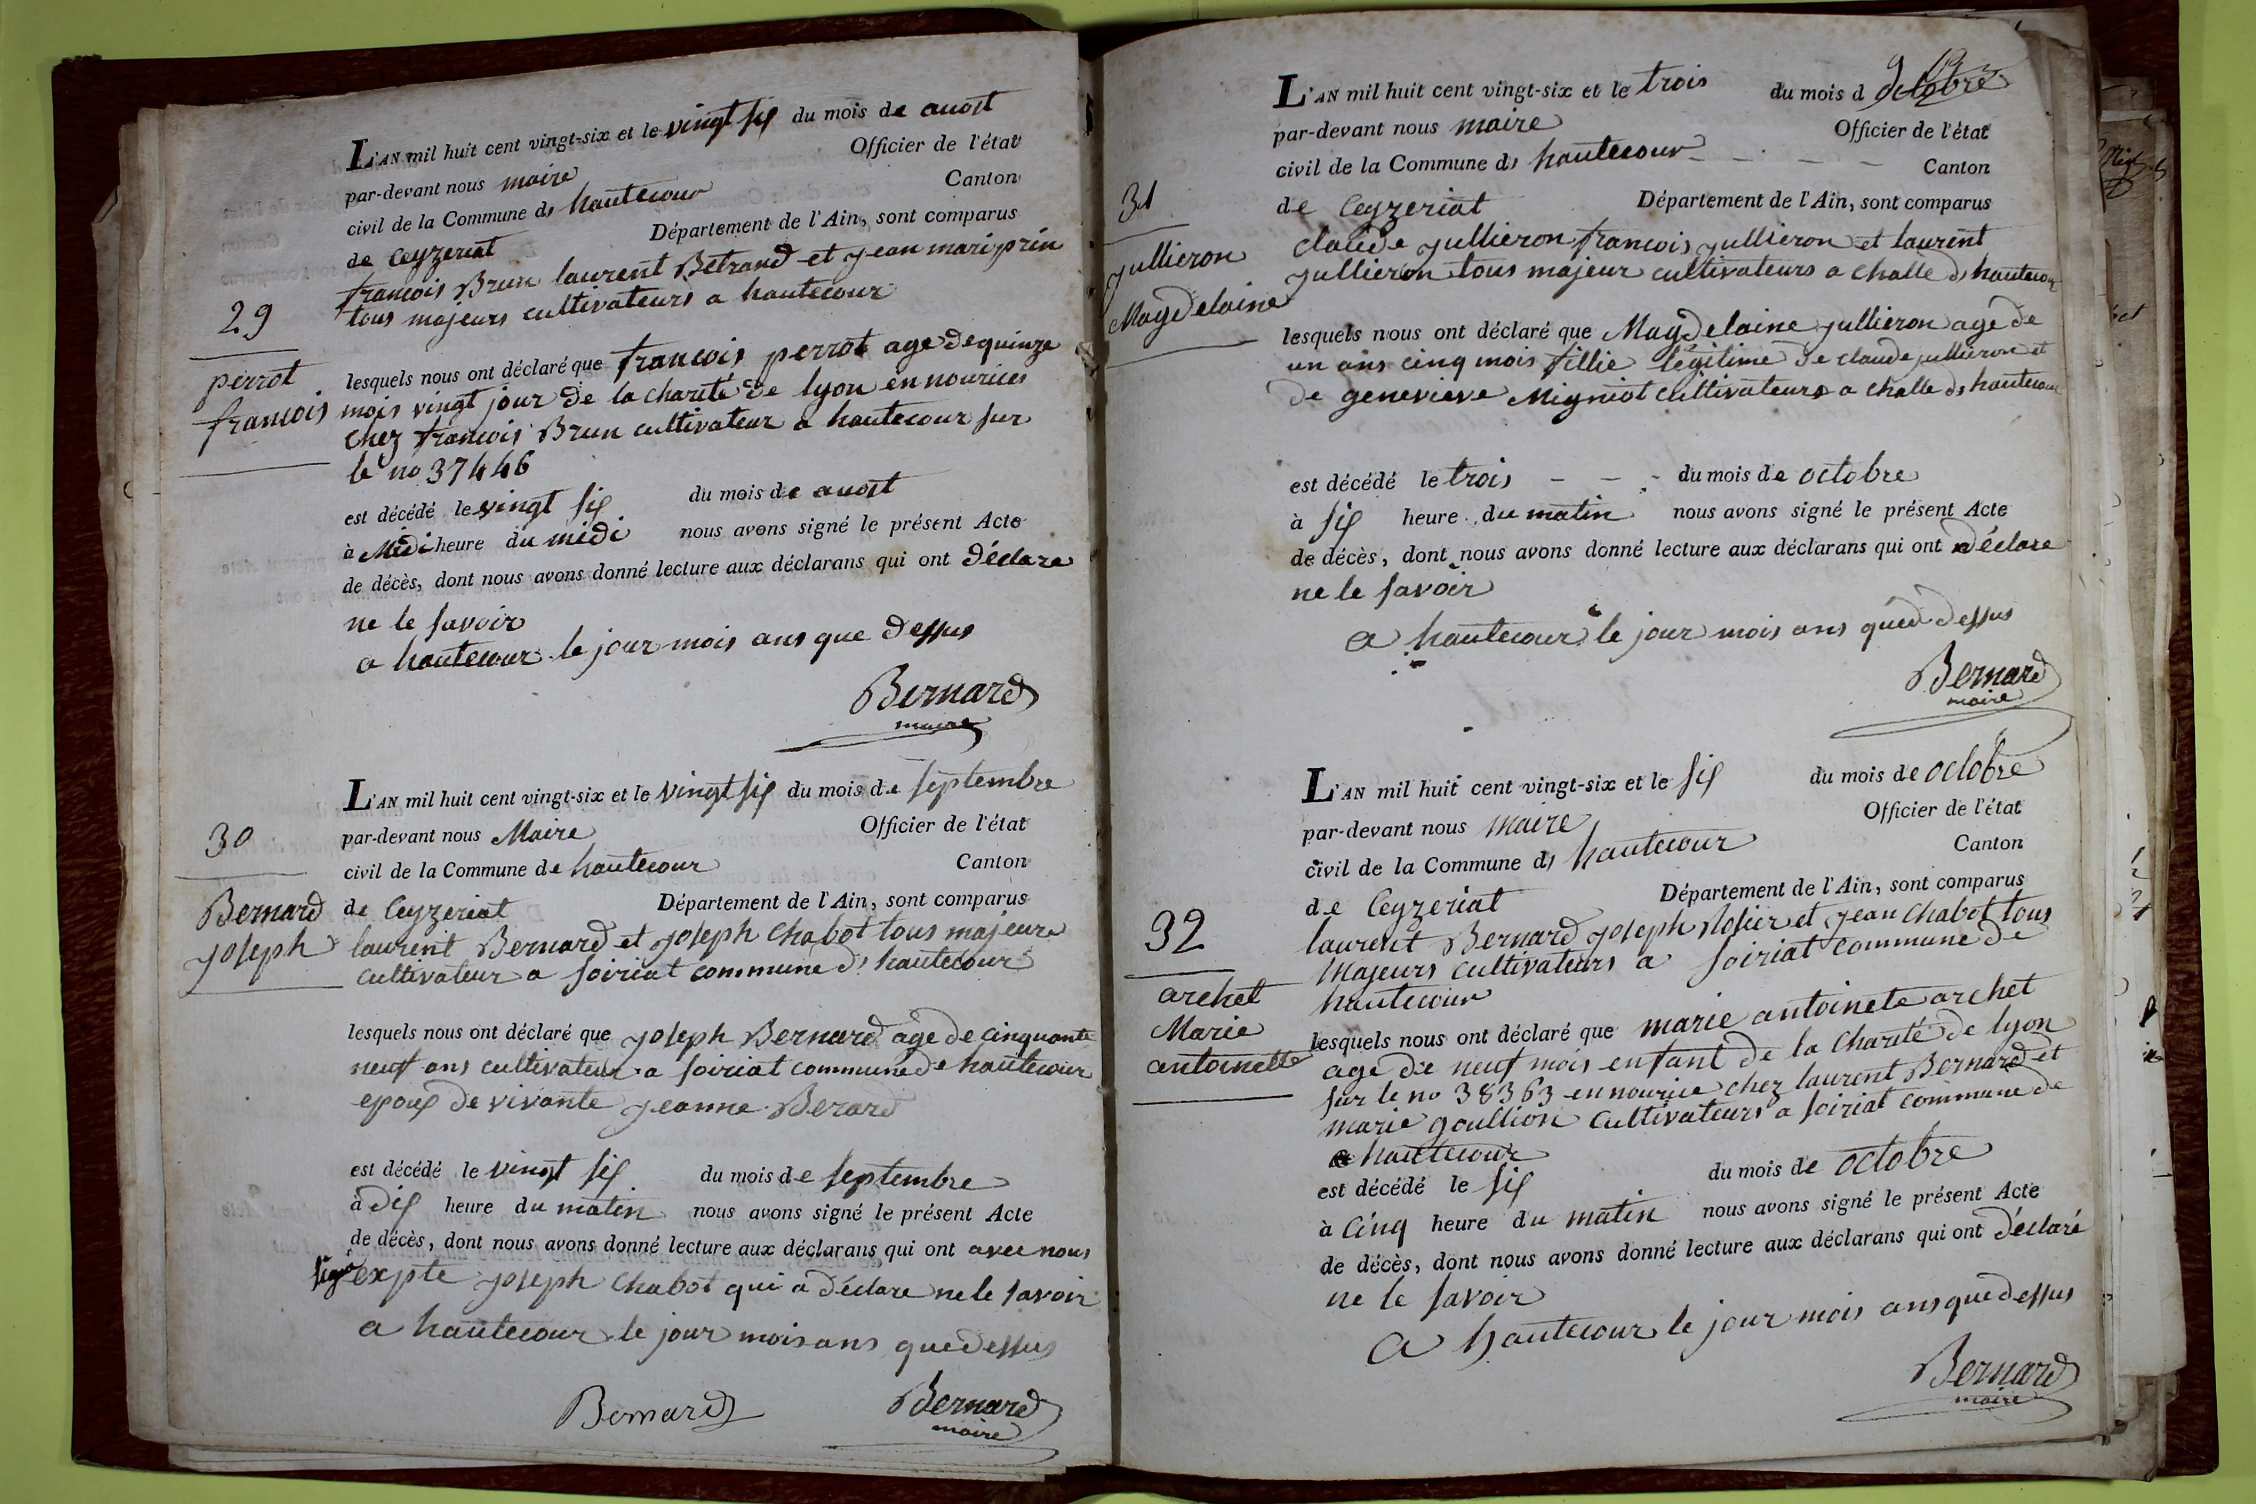 L'AN mil huit cent vingt-six et le vingt six du mois de auost
par-devant nous maire Officier de l'état
civil de la Commune de hautecour Canton
de Ceyzeriat Département de l'Ain, sont comparus
francois Brun laurent Betrand et jean mari prin
tous majeurs cultivateurs a hautecour
29
perrot
francois
lesquels nous ont déclaré que francois perrot age de quinze
mois vingt jour de la charité de lyon en nourices
chez francois Brun cultivateur a hautecour sur
le no 37446
est décédé le vingt six du mois de auost
à Midi heure du midi nous avons signé le présent Acte
de décès, dont nous avons donné lecture aux déclarans qui ont déclare
ne le savoir
a hautecour le jour mois ans que dessus
Bernard
maire
L'AN mil huit cent vingt-six et le vingt six du mois de septembre
par-devant nous Maire Officier de l'état
civil de la Commune de hautecour Canton
de Ceyzeriat Département de l'Ain, sont comparus
30
Bernard
joseph
laurent Bernard et joseph Chabot tous majeurs
cultivateur a soiriat commune de hautecour
lesquels nous ont déclaré que joseph Bernard age de cinquante
neuf ans cultivateur a soiriat commune de hautecour
epoux de vivante jeanne Berard
est décédé le vingt six du mois de septembre
à dix heure du matin nous avons signé le présent Acte
de décès, dont nous avons donné lecture aux déclarans qui ont avec nous
signé expte joseph Chabot qui a déclare ne le savoir
a hautecour le jour mois ans que dessus
Bernard Bernard
maire
L'AN mil huit cent vingt-six et le trois du mois d octobre
par-devant nous maire Officier de l'état
civil de la Commune de hautecour Canton
de Ceyzeriat Département de l'Ain, sont comparus
31
jullieron
Magdelaine
claude jullieron francois jullieron et laurent
jullieron tous majeur cultivateurs a challe de hautecour
lesquels nous ont déclaré que Magdelaine jullieron age de
un ans cinq mois fillie légitime de claude jullieron et
de genevieve Migniot cultivateurs a challe de hautecour
est décédé le trois du mois de octobre
à six heure du matin nous avons signé le présent Acte
de décès, dont nous avons donné lecture aux déclarans qui ont déclare
ne le savoir
a hautecour le jour mois ans que dessus
Bernard
maire
L'AN mil huit cent vingt-six et le six du mois de octobre
par-devant nous maire Officier de l'état
civil de la Commune de hautecour Canton
de Ceyzeriat Département de l'Ain, sont comparus
32
archet
Marie
antoinette
laurent Bernard joseph et jean Chabot tous
Majeurs cultivateurs a soiriat commune de
hautecour
lesquels nous ont déclaré que marie antoinete archet
age de neuf mois enfant de la Charité de lyon
sur le no 38363 en nourice chez laurent Bernard et
marie goullion cultivateurs a soiriat commune de
hautecour
est décédé le six du mois de octobre
à Cinq heure du matin nous avons signé le présent Acte
de décès, dont nous avons donné lecture aux déclarans qui ont déclaré
ne le savoir
a hautecour le jour mois ans que dessus
Bernard
maire